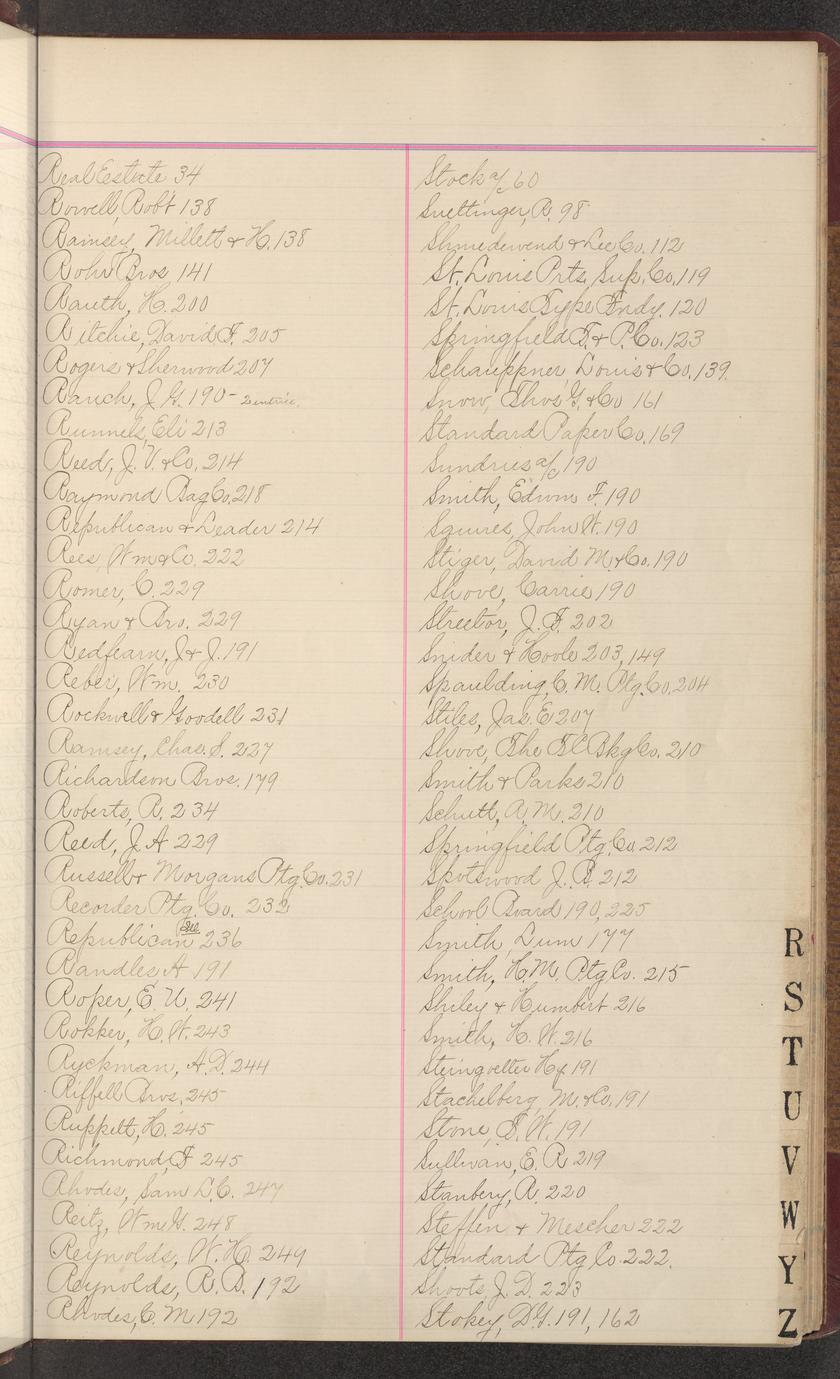 Real Estate 34
Rowell, Robt 138
Ramsey, Millett & H. 138
Rohr Bros 141
Rauth, H. 200
Ritchie, David F. 205
Rogers & Sherwood 207
Rauch, J. G. 190 - 2 entries.
Runnels, Eli 213
Reed, J. V. & Co. 214
Raymond Bag Co. 218
Republican & Leader 214
Rees, Wm & Co. 222
Romer, C. 229
Ryan & Bro. 229
Redfearn, J & J. 191
Reber, Wm. 230
Rockwell & Goodell 231
Ramsey, Chas. S. 227
Richardson Bros. 179
Roberts, R. 234
Reed, J. A 229
Russell & Morgans Ptg. Co. 231
Recorder Ptg. Co. 232
Republican 236
Randles A 191
Roper, E. U. 241
Rokker, H. W. 243
Ryckman, A. D. 244
Riffell Bros. 245
Ruppett, H. 245
Richmond, F 245
Rhodes, Sam L. C. 247
Reitz, Wm G. 248
Reynolds, W. H. 249
Reynolds, R. B. 192
Rhodes, C. M 192
Stock a/c 60
Suettinger, R. 98
& Lee Co. 112
St. Louis Prts. Sup. Co. 119
St. Louis Type Fndy. 120
Springfield F. & P. Co. 123
Schauppner, Louis & Co. 139.
Snow, Thos G. & Co 161
Standard Paper Co. 169
Sundries a/c 190
Smith, Edwin F. 190
Squires, John W. 190
Stiger, David M. & Co. 190
Shove, Carrie 190
Streetor, J. F. 202
Snider & Hoole 203, 149
Spaulding, C. M. Ptg. Co. 204
Stiles, Jas. E 207
Shove, The T C Bkg Co. 210
Smith & Parks 210
Schutt, A. M. 210
Springfield Ptg. Co. 212
Spotswood J. B. 212
School Board 190, 225
Smith Lum 177
Smith, H. M. Ptg Co. 215
Shiley & Humbert 216
Smith, H. W. 216
Steingoetter Hy 191
Stachelberg, M. & Co. 191
Stone, F. W. 191
Sullivan, E. R 219
Stanbery, R. 220
Steffen & Mescher 222
Standard Ptg Co. 222.
Shoots, J. D. 223
Stokey, D. G. 191, 162
R
S
T
U
V
W
Y
Z